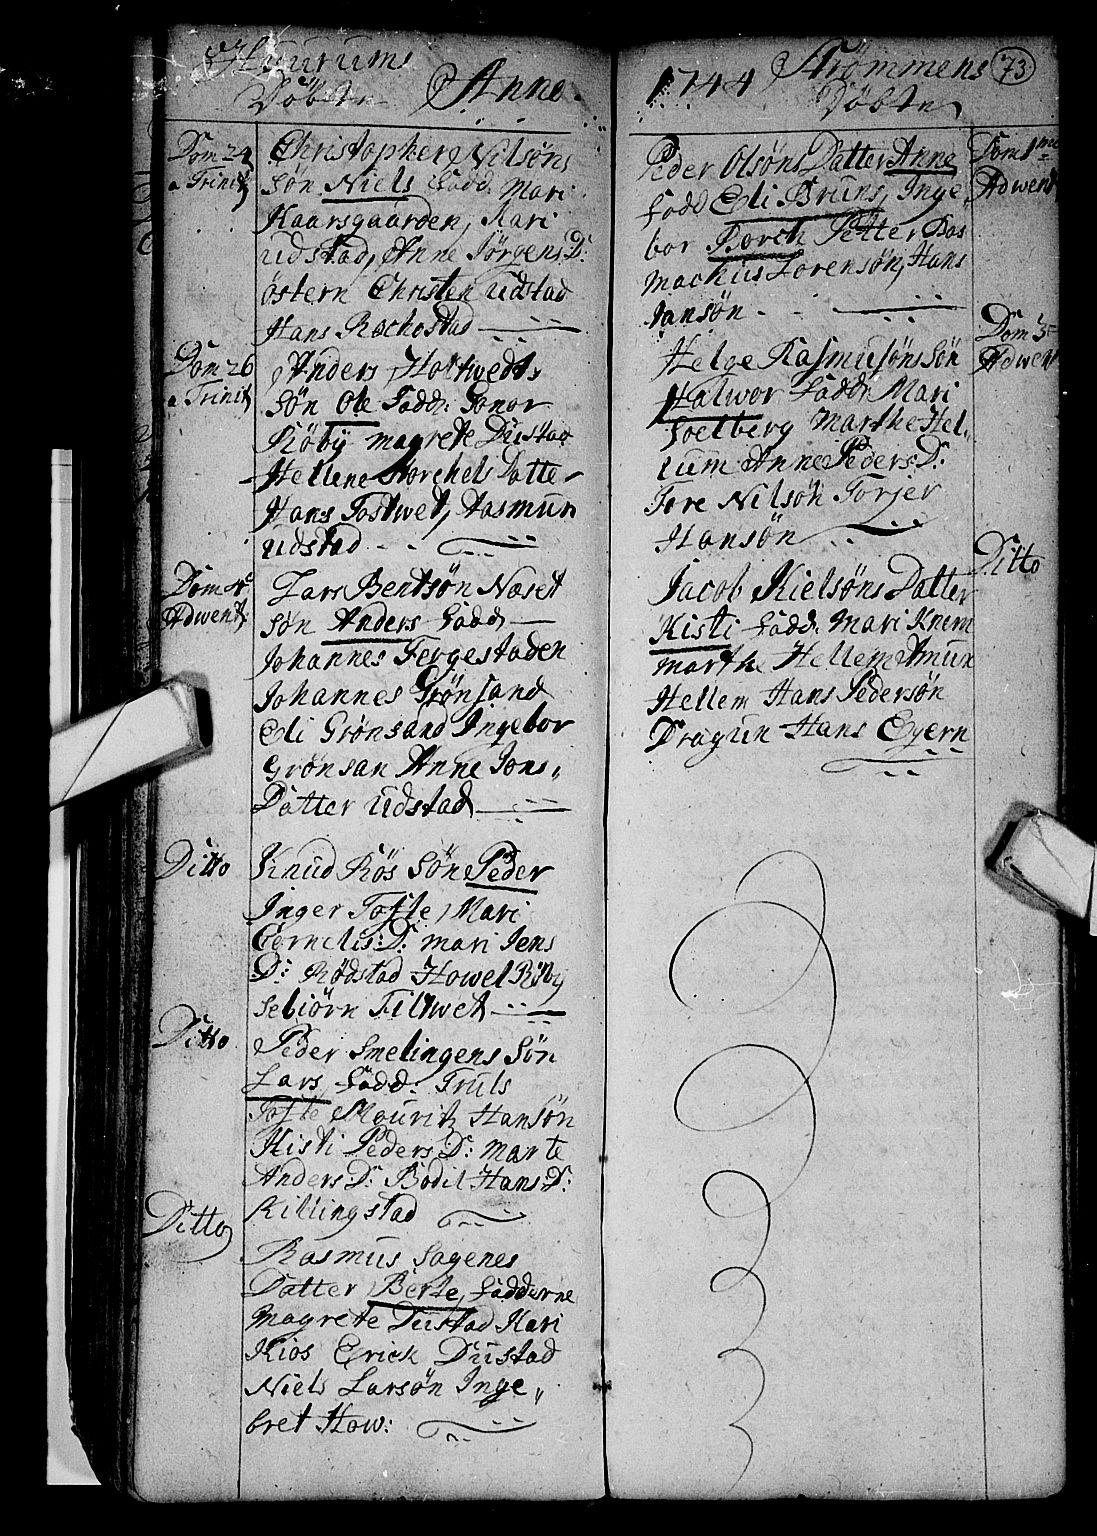 Huurums
Döbte Anno
Dom 24
a Trinit
Christopher Nilsöns
Sön Niels Fadd. Mari
Haarsgaarden, Kari
Udstad, Anne Jörgens D:
östern Christen Udstad
Hans Rachestad
Dom 26
a Trinit
Anders Holtwedts
Sön Ole Fadd: Gonor
Röby magrete Dustad
Hellene Torchels Datte
Hans Tostwet, Rasmun
Udstad
Dom 4
Adwent
Lars Bentsön Næset
Sön Anders Fadd
Johannes Fergestaden
Johannes Grönsand
Eli Grönsand Ingebor
Grönsan Anne Jons„
Datter Udstad
Ditto
Knud Rös Sön Peder
Inger Tofte, Mari
Cornelis: D: mari Jens
D: Rödstad Howel Röby
Sebiörn Filtwet
Ditto
Peder Smelingens Sön
Lars Fadd: Truls
Tofte Mouritz Hansön
Kisti Peders D: Marte
Anders: D: Bodil Hans: D:
Killingstad
Ditto
Rasmus Sagenes
Datter Berte, Fadderne
Magrete Dustad Kari
Kios Erick Dustad
Niels Larsön Inge„
bret How:
1744 Strömmens 73
Döbte
Dom 1me
Adwent
Peder Olsöns Datter Anne
Fadd Eli Bruns, Inge
bor Borch Petter Bas
machus Lorensön, Hans
Jansön
Dom 3
Adwent
Helge Rasmusöns Sön
Halwor Fadd: Mari
Soelberg Marthe Hel„
lum Anne Peders: D:
Tore Nilsön Torjer
Hansön
Ditto
Jacob Kielsöns Datter
Kisti Fadd: Mari Knem
Marthe Hellem Amun
Hellem Hans Pedersön
Dragun Hans Egern